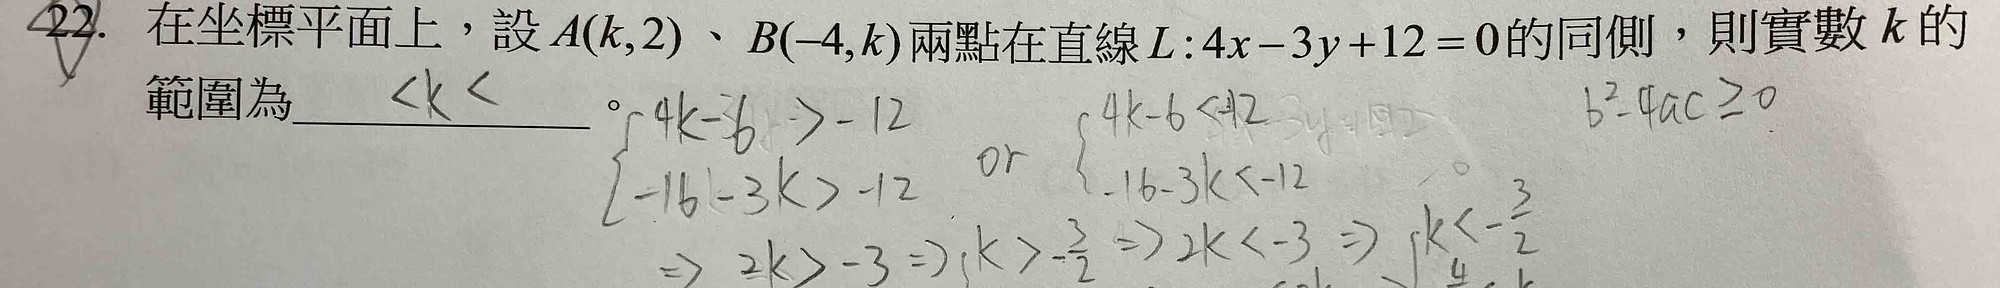 22. 在坐標平面上，設 A(k,2) 、 B(−4,k) 兩點在直線 L : 4x−3y+12=0 的同側，則實數 k 的
範圍為 <k< 。
{ 4k-6 > -12 or { 4k-6 < -12 b²-4ac ≥ 0
-16-3k > -12 -16-3k < -12
⇒ 2k > -3 ⇒ { k > -3/2 ⇒ 2k < -3 ⇒ { k < -3/2